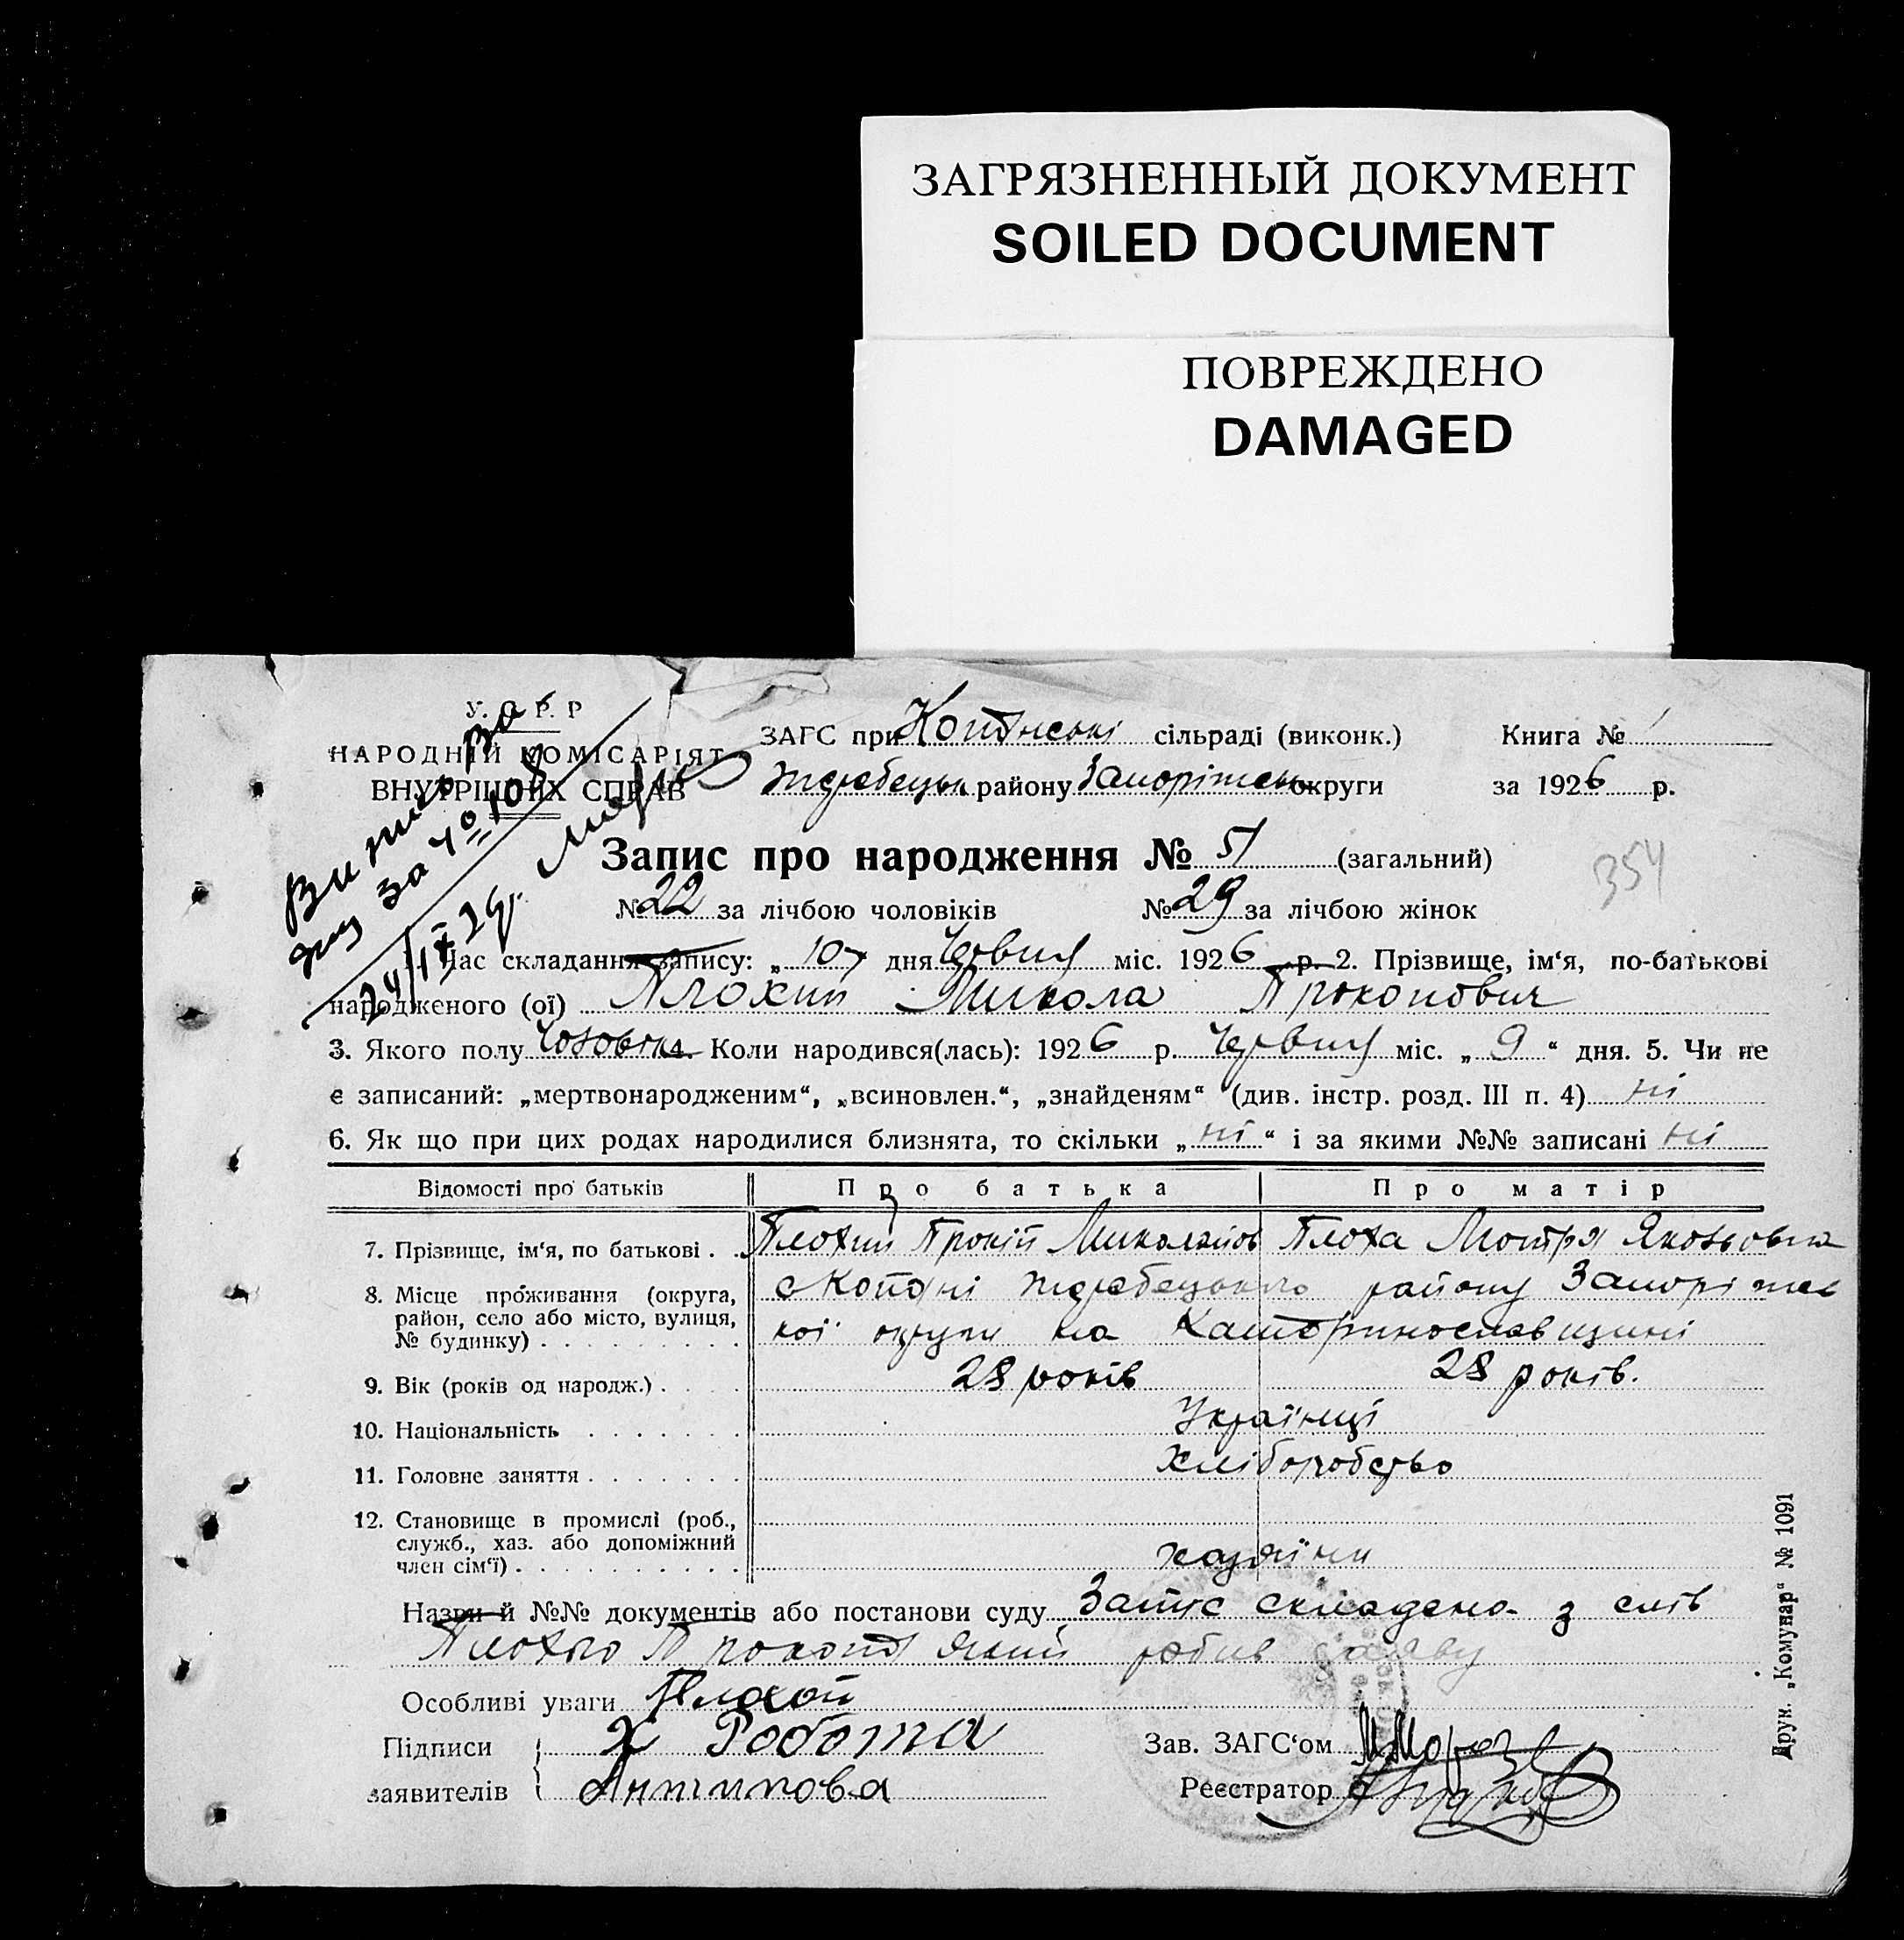 ЗАГРЯЗНЕННЫЙ ДОКУМЕНТ
SOILED DOCUMENT
ПОВРЕЖДЕНО
DAMAGED
У. С. Р. Р
НАРОДНІЙ КОМІСАРІЯТ
ВНУТРІШНІХ СПРАВ
ЗАГС при сільраді (виконк.) Книга № 1
району округи за 1926 р.
Запис про народження № 51 (загальний)
354
№ 22 за лічбою чоловіків № 29 за лічбою жінок
за № 108
24/IX 29 р.
Час складання запису: „ 10 дня Червня міс. 1926 р. 2. Прізвище, ім‘я, по-батькові
народженого (ої) Плохий Микола Прокопович
3. Якого полу 4. Коли народився(лась): 1926 р. Червня міс. „ 9 “ дня. 5. Чи не
є записаний: „мертвонародженим“, „всиновлен.“, „знайденям“ (див. інстр. розд. III п. 4) ні
6. Як що при цих родах народилися близнята, то скільки „ ні “ і за якими №№ записані ні
Відомості про батьків Про батька Про матір
7. Прізвище, ім‘я, по батькові . . Плохий Прокіп Миколайов Плоха Мотря Яковьовна
8. Місце проживання (округа,
район, село або місто, вулиця,
№ будинку) . . . . . . . . .
с Копані Жеребецького району Запоріжсь
кої округи на Катеринославщині
9. Вік (років од народж.) . . . . 28 років 28 років.
10. Національність . . . . . . . Українці
11. Головне заняття . . . . . . . Хліборобство
12. Становище в промислі (роб.,
служб., хаз. або допоміжний
член сім‘ї) . . . . . . . . . . хазяїни
Назви й №№ документів або постанови суду Запис складено з слів
Плохого який робив заяву
Особливі уваги Плохой
Підписи Х Робота Зав. ЗАГС‘ом М Мороз
заявителів Антипова Реєстратор
Друк. „Комунар“ № 1091